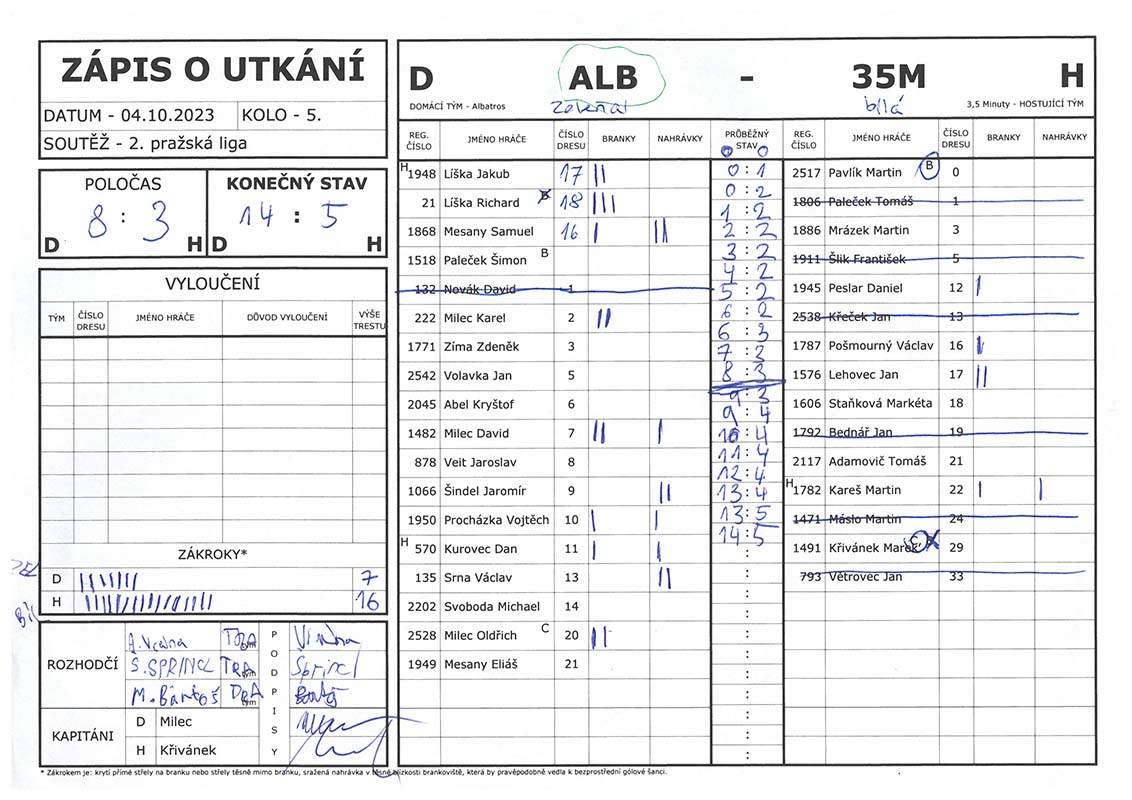 ZÁPIS O UTKÁNÍ
DATUM - 04.10.2023 KOLO - 5.
SOUTĚŽ - 2. pražská liga
POLOČAS KONEČNÝ STAV
8 : 3 14 : 5
D H D H
VYLOUČENÍ
TÝM ČÍSLO DRESU JMÉNO HRÁČE DŮVOD VYLOUČENÍ VÝŠE TRESTU
ZÁKROKY*
D 7
H 16
ROZHODČÍ
TRA
Š. SPRINCL TRA Šprincl
M. Bartoš DRA
PODPISY
KAPITÁNI
D Milec
H Křivánek
D ALB - 35M H
DOMÁCÍ TÝM - Albatros bílá 3,5 Minuty - HOSTUJÍCÍ TÝM
REG. ČÍSLO JMÉNO HRÁČE ČÍSLO DRESU BRANKY NAHRÁVKY PRŮBĚŽNÝ STAV REG. ČÍSLO JMÉNO HRÁČE ČÍSLO DRESU BRANKY NAHRÁVKY
H 1948 Líška Jakub 17 ||
21 Líška Richard B 18 |||
1868 Mesany Samuel 16 | ||
1518 Paleček Šimon B
132 Novák David 1
222 Milec Karel 2 ||
1771 Zíma Zdeněk 3
2542 Volavka Jan 5
2045 Abel Kryštof 6
1482 Milec David 7 || |
878 Veit Jaroslav 8
1066 Šindel Jaromír 9 ||
1950 Procházka Vojtěch 10 | |
H 570 Kurovec Dan 11 | |
135 Srna Václav 13 ||
2202 Svoboda Michael 14
2528 Milec Oldřich C 20 ||
1949 Mesany Eliáš 21
0 0
0 : 1
0 : 2
1 : 2
2 : 2
3 : 2
4 : 2
5 : 2
6 : 2
6 : 3
7 : 3
8 : 3
9 : 3
9 : 4
10 : 4
11 : 4
12 : 4
13 : 4
13 : 5
14 : 5
2517 Pavlík Martin B 0
1806 Paleček Tomáš 1
1886 Mrázek Martin 3
1911 Šlik František 5
1945 Peslar Daniel 12 |
2538 Křeček Jan 13
1787 Pošmourný Václav 16 |
1576 Lehovec Jan 17 ||
1606 Staňková Markéta 18
1792 Bednář Jan 19
2117 Adamovič Tomáš 21
H 1782 Kareš Martin 22 | |
1471 Máslo Martin 24
1491 Křivánek Marek C 29
793 Větrovec Jan 33
* Zákrokem je: krytí přímé střely na branku nebo střely těsně mimo branku, sražená nahrávka v těsné blízkosti brankoviště, která by pravěpodobně vedla k bezprostřední gólové šanci.